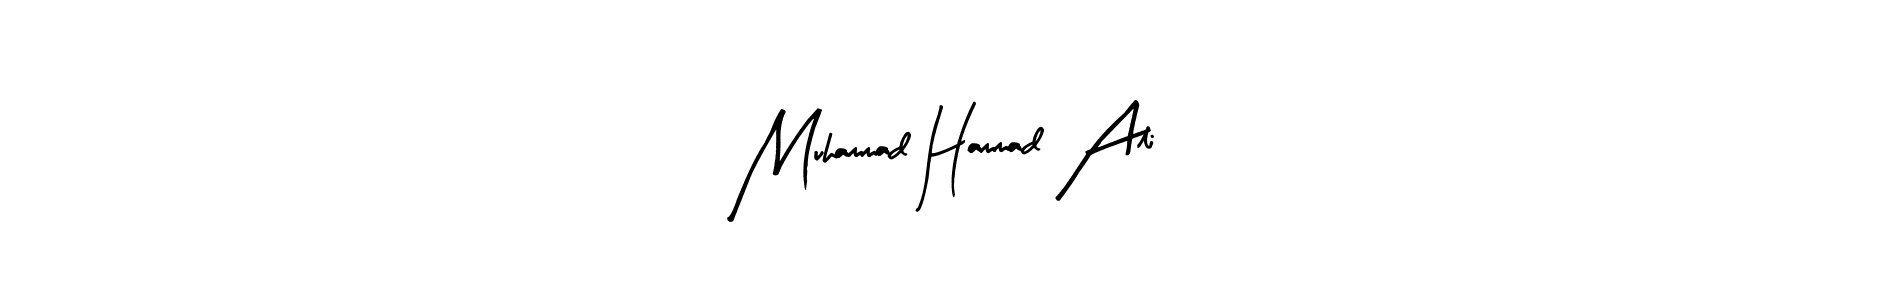 Muhammad Hammad Ali